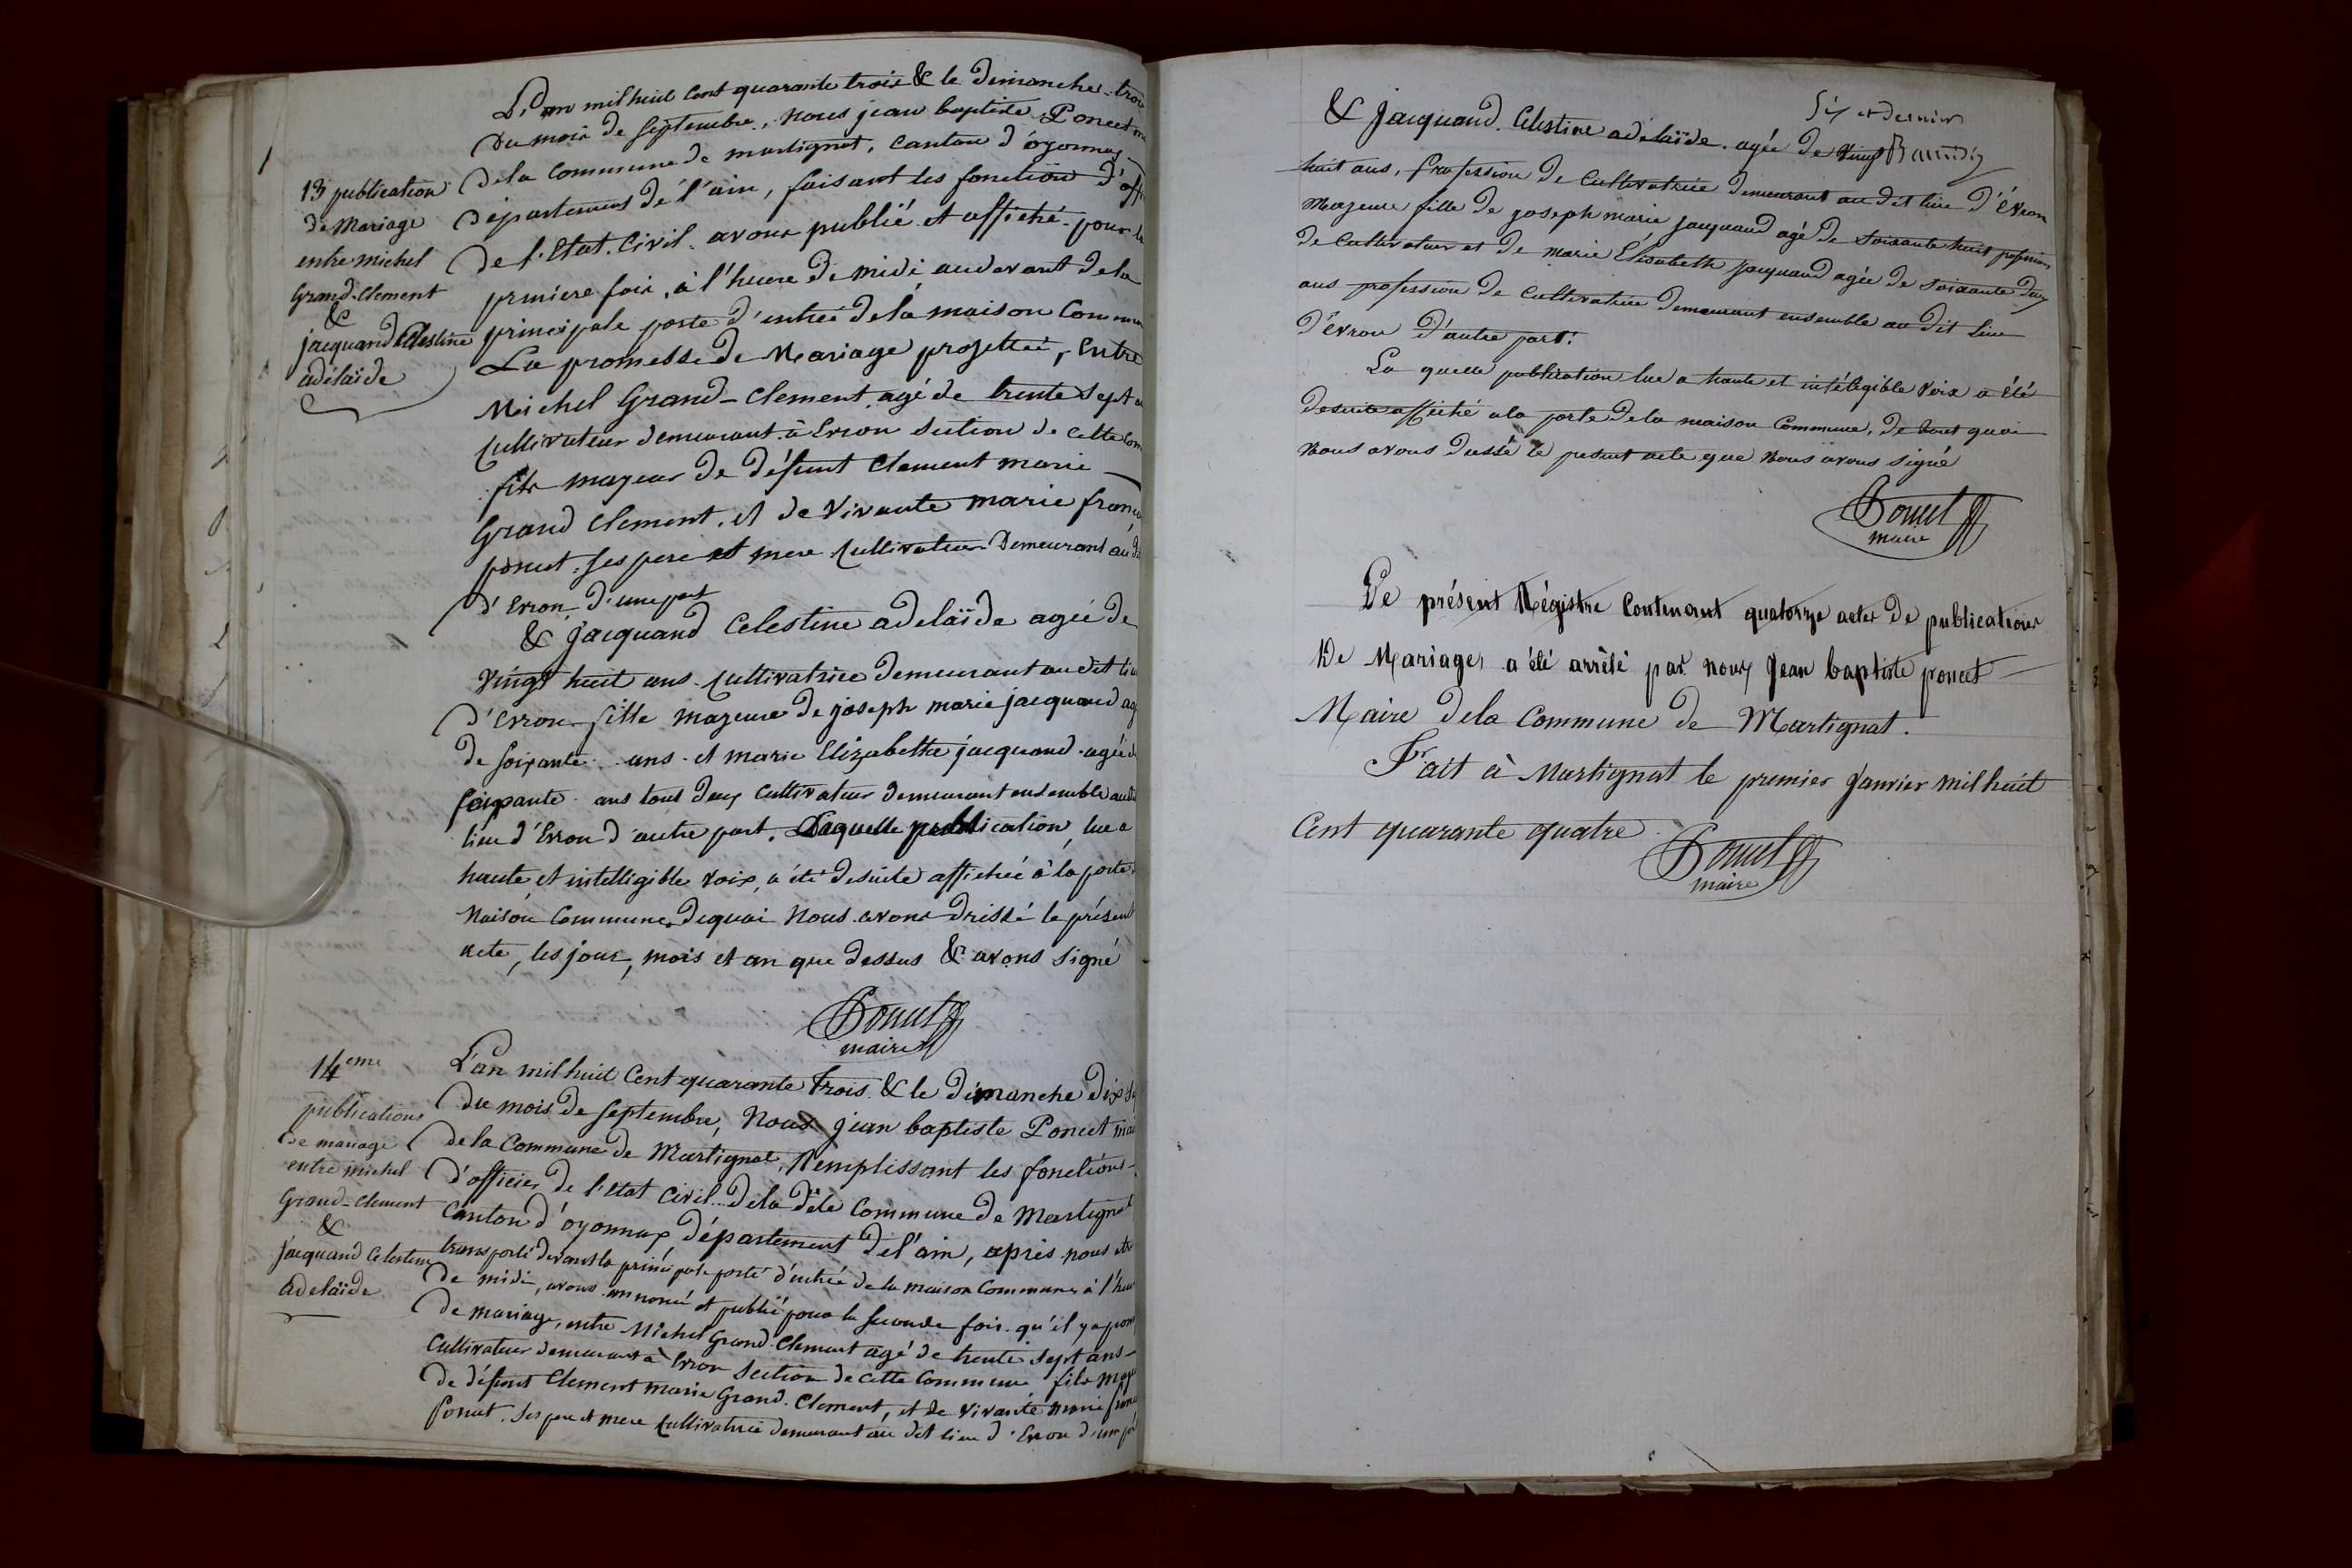 L'an mil huit Cent quarante trois & le Dimanche trois
Du mois de Septembre, Nous jean baptiste Poncet
13 publication
de Mariage
entre michel
Grand-Clement
&
jacquand Celestine
adélaïde
De la Commune de martignat, Canton d'oyonnax
Département de l'ain, faisant les fonction d'off
De l'Etat. Civil. avons publié et affiché pour la
premiere fois, à l'heure de midi au devant de la
principale porte d'entrée de la maison Commune
La promesse de Mariage projettée, Entre
Michel Grand-Clement agé de trente Sept a
Cultivateur demeurant à Evron Section de cette Com
fils majeur de défunt Clement marie
Grand Clement, et de Vivante marie franç
poncet. Ses pere et mere Cultivateur Demeurant au d
d'Evron d'une part
& Jacquand Celestine adelaïde agée de
Vingt huit ans Cultivatrice demeurant au dit lieu
d'Evron fille majeure de joseph marie jacquand ag
de soixante ans et marie Elizabethe jacquand agée d
soixante ans tout deux Cultivateur demeurant ensemble au d
lieu d'Evron d'autre part. Laquelle publication, lue a
haute et intelligible voix, a été desuite affichée à la porte
Maison Commune, de quoi Nous avons Dressé le présent
acte, les jour, mois et an que dessus & avons signé
Poncet
maire
14eme
publications
de mariage
entre michel
Grand-Clement
&
jacquand Celestine
Adelaïde
L'an mil huit Cent quarante Trois & le Dimanche Dix S
Du mois de Septembre, Nous jean baptiste Poncet mai
de la Commune de Martignat, Remplissant les fonctions
d'officier de l'Etat Civil de la Dite Commune de Martignat
Canton d'oyonnax, Département de l'ain, après nous etre
transporté devant la principale porte d'entrée de la maison Commune à l'heur
de midi, avons annoncé et publié pour la seconde fois qu'il y a prom
De mariage, entre Michel Grand Clement agé de trente sept ans
Cultivateur demeurant à Evron Section de cette Commune fils maje
De défunt Clement Marie Grand. Clement, et de Vivante Marie franc
Poncet. Ses pere et mere Cultivatrice demeurant au dit lieu d'Evron d'une par
Six et dernier
& Jacquand. Celestine adelaïde. agée de Vingt
huit ans, profession de Cultivatrice demeurant au dit lieu d'Evron
Majeure fille de joseph marie Jacquand agé de Soixante huit profession
de Cultivateur et de marie Elisabeth Jacquand agée de soixante deux
ans profession de Cultivatrice demeurant ensemble au dit lieu
d'Evron D'autre part.
La quelle publication lue a haute et intéligible Voix a été
desuite affiché a la porte de la maison Commune, de tout quoi
Nous avons Dressé le present acte que Nous avons signé
Poncet
maire
Le présent Régistre Contenant quatorze actes de publications
De Mariages a été arrêté par nous Jean baptiste poncet
Maire de la Commune de Martignat.
Fait à Martignat le premier Janvier mil huit
Cent quarante quatre
Poncet
maire